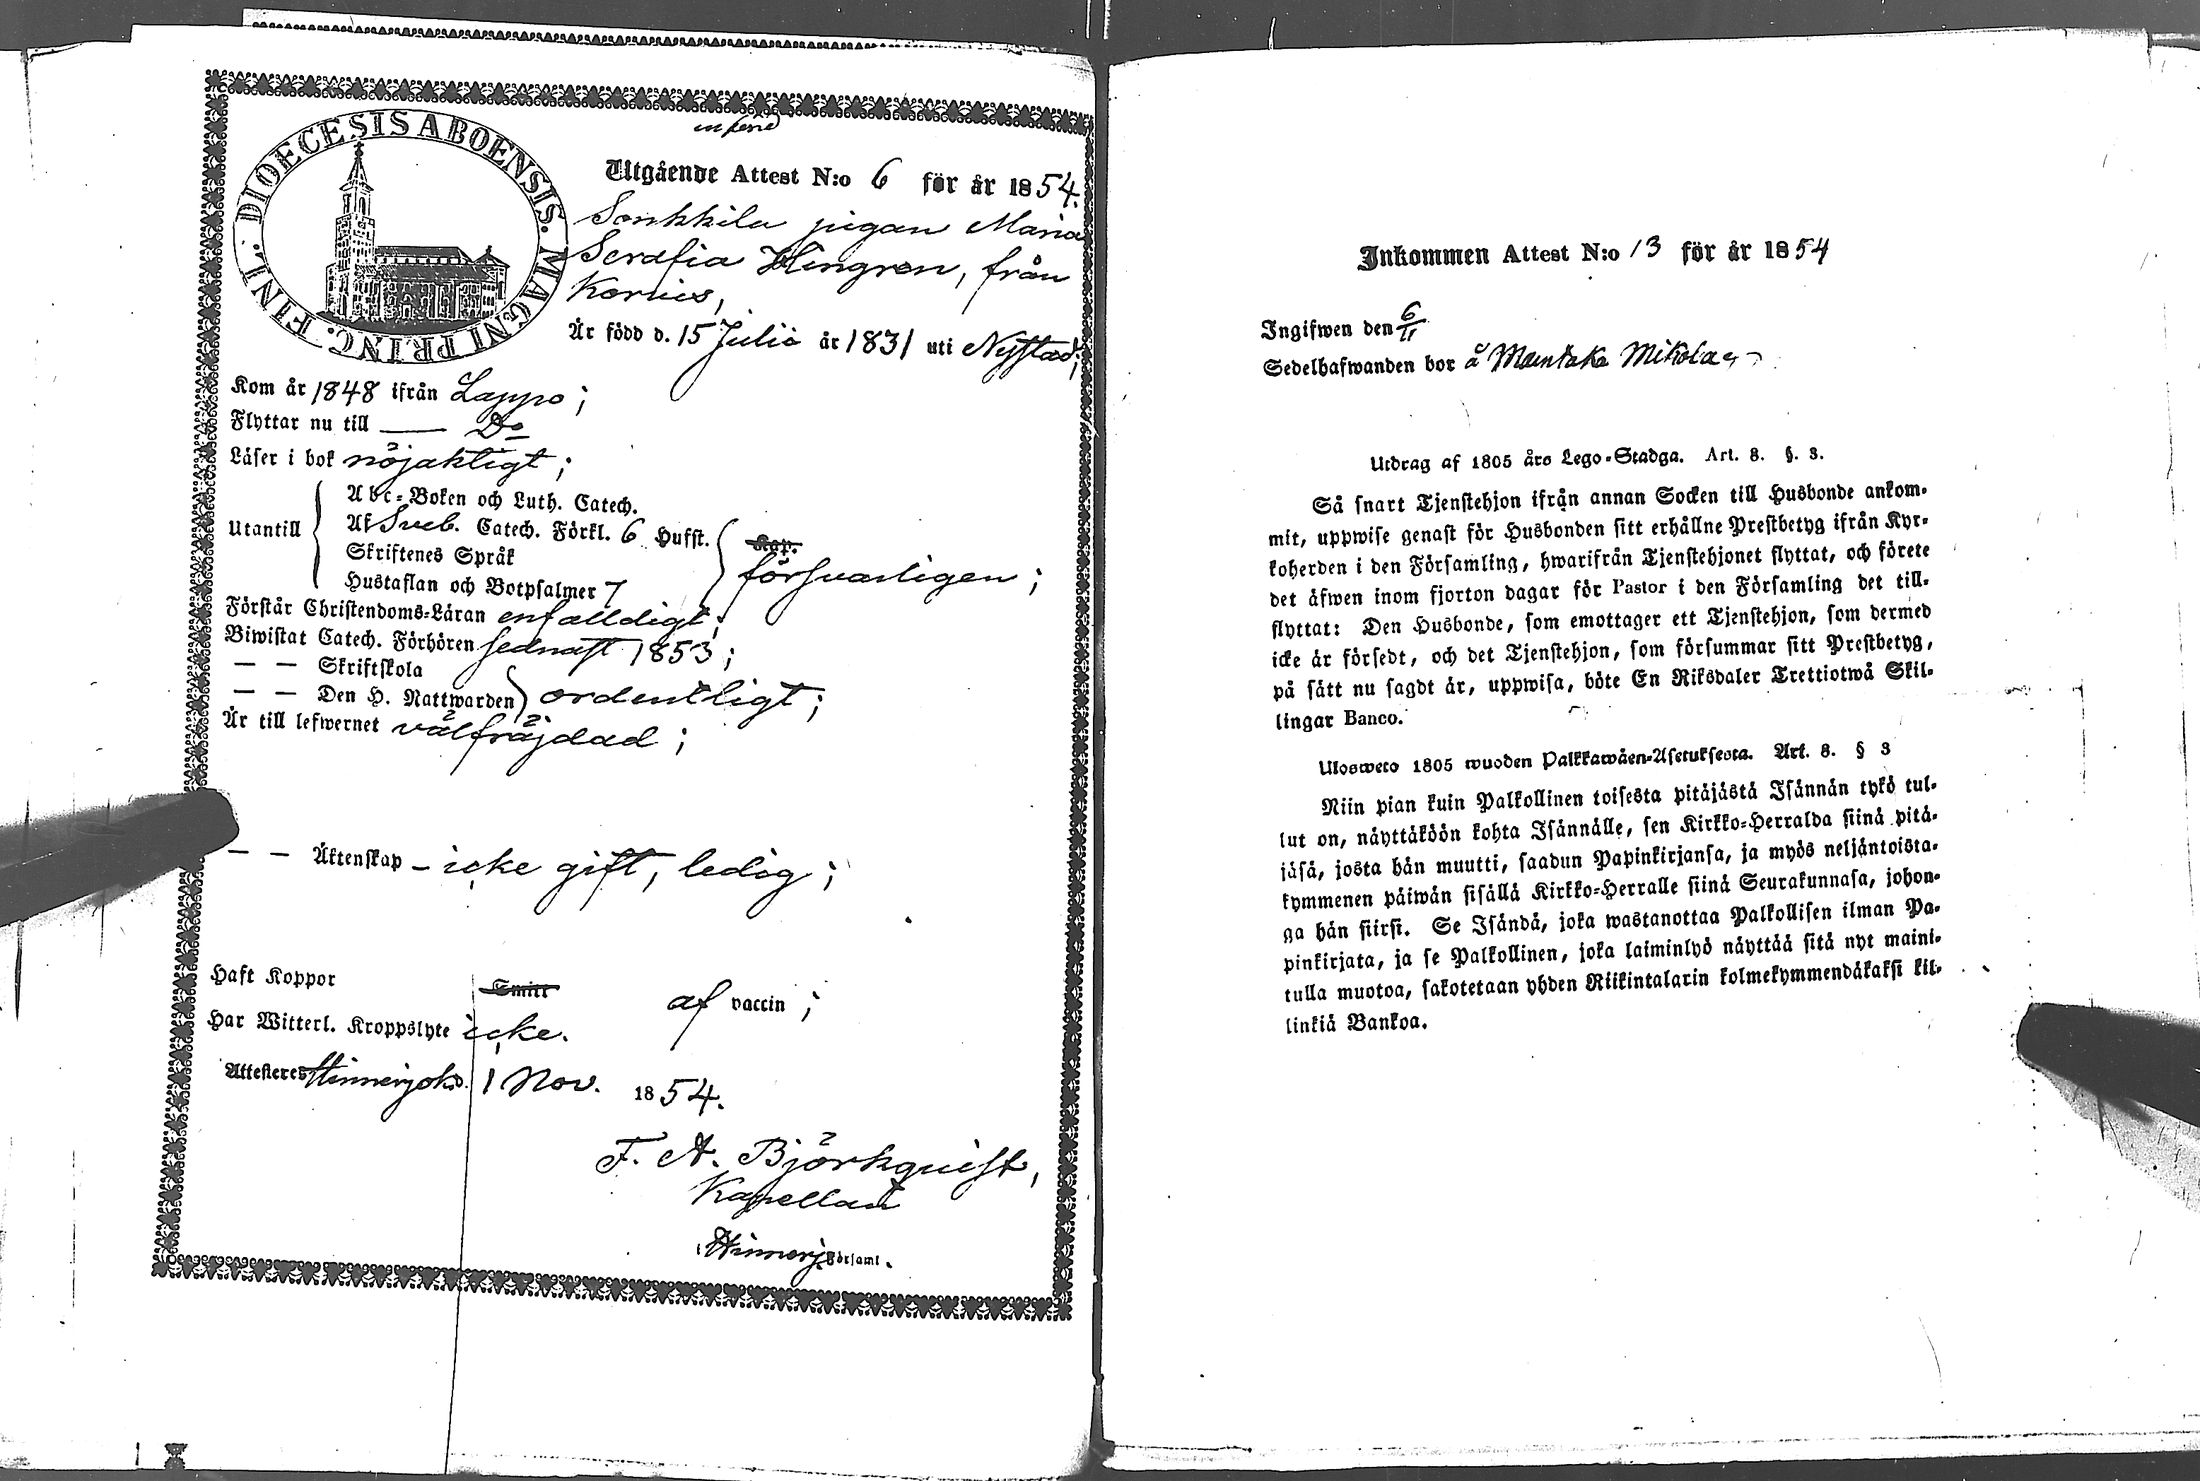 DIOECESIS ABOENSIS. MAGNI PRINC. FINL.
införd
Utgående Attest N:o 6 för år 1854.
Sonkkila pigan Maria
Serafia Hlingren, från
Korvies,
Är född d. 15 Julii år 1831 uti Nystad;
Kom år 1848 ifrån Lappo;
Flyttar nu till —— Do
Läser i bok nöjaktigt;
Utantill
Abc-Boken och Luth. Catech.
Af Sveb. Catech. Förkl. 6 Hufst.
Skriftenes Språk
Hustaflan och Botpsalmer 7
Kap.
försvarligen;
Förstår Christendoms-Läran enfalldigt;
Biwistat Catech. Förhören sednast 1853;
— — Skriftskola
— — Den H. Nattwarden ordentligt;
Är till lefwernet välfräjdad;
— — Äktenskap - icke gift, ledig;
Haft Koppor Smitt af vaccin;
Har Witterl. Kroppslyte icke.
Attesteres Hinnerjoki. 1 Nov. 1854.
F. A. Björkquist,
Kapellan
Hinnerj. Församl.
Inkommen Attest N:o 13 för år 1854
Ingifwen den 6/11
Sedelhafwanden bor å Mikola
Utdrag af 1805 års Lego-Stadga. Art. 8. §. 3.
Så snart Tjenstehjon ifrån annan Socken till Husbonde ankom-
mit, uppwise genast för Husbonden sitt erhållne Prestbetyg ifrån Kyr-
koherden i den Församling, hwarifrån Tjenstehjonet flyttat, och förete
det äfwen inom fjorton dagar för Pastor i den Församling det till-
flyttat: Den Husbonde, som emottager ett Tjenstehjon, som dermed
icke är försedt, och det Tjenstehjon, som försummar sitt Prestbetyg,
på sätt nu sagdt är, uppwisa, böte En Riksdaler Trettiotwå Skil-
lingar Banco.
Ulosweto 1805 wuoden Palkkawäen-Asetuksesta. Art. 8. § 3
Niin pian kuin Palkollinen toisesta pitäjästä Isännän tykö tul-
lut on, näyttäköön kohta Isännälle, sen Kirkko-Herralda siinä pitä-
jäsä, josta hän muutti, saadun Papinkirjansa, ja myös neljäntoista-
kymmenen päiwän sisällä Kirkko-Herralle siinä Seurakunnasa, johon-
ga hän siirsi. Se Isändä, joka wastanottaa Palkollisen ilman Pa-
pinkirjata, ja se Palkollinen, joka laiminlyö näyttää sitä nyt maini-
tulla muotoa, sakotetaan yhden Riikintalarin kolmekymmendäkaksi kil-
linkiä Bankoa.